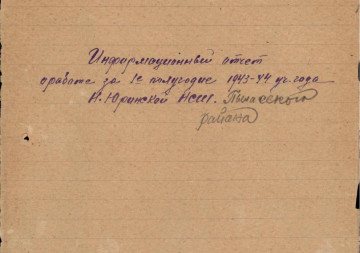 Информационный отчет
о работе за 1е полугодие 1943-44 уч. года
Н. Юринской НСШ.
района